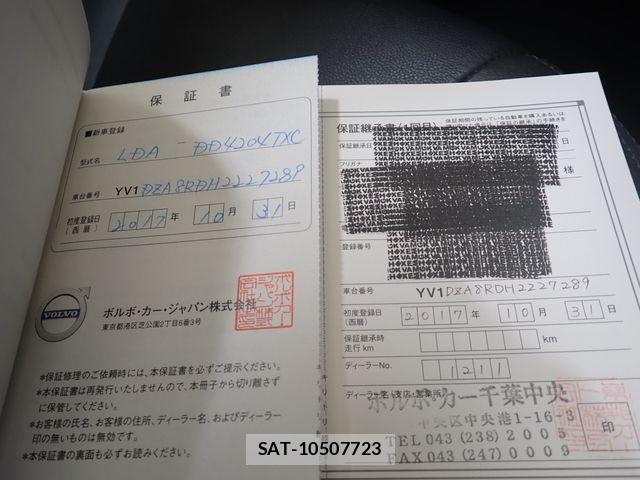 保証書
■新車登録
型式名 LDA - DD4204TXC
車台番号 YV1DZA8RDH2227289
初度登録日(西暦) 2017年10月31日
VOLVO
ボルボ・カー・ジャパン株式会社
東京都港区芝公園2丁目6番3号
*保証修理のご依頼時には、本保証書を必ずご提示ください。
*本保証書は再発行いたしませんので、本冊子から切り離さずに保管してください。
*お客様の氏名、お客様の住所、ディーラー名、およびディーラー印の無いものは無効です。
*本保証書の裏面も必ずお読みください。
キリトリ
保証継承書(1回目)
保証期間の残っている自動車を購入あるいは
保証継承日
フリガナ
様
登録番号
車台番号 YV1DZA8RDH2227289
初度登録日(西暦) 2017年10月31日
保証継承時走行km km
ディーラーNo. 1211
ディーラー名・支店・営業所
ボルボ・カー千葉中央
中央区中央港1-16-3
TEL 043 (238) 2005
FAX 043 (247) 0009
印
SAT-10507723